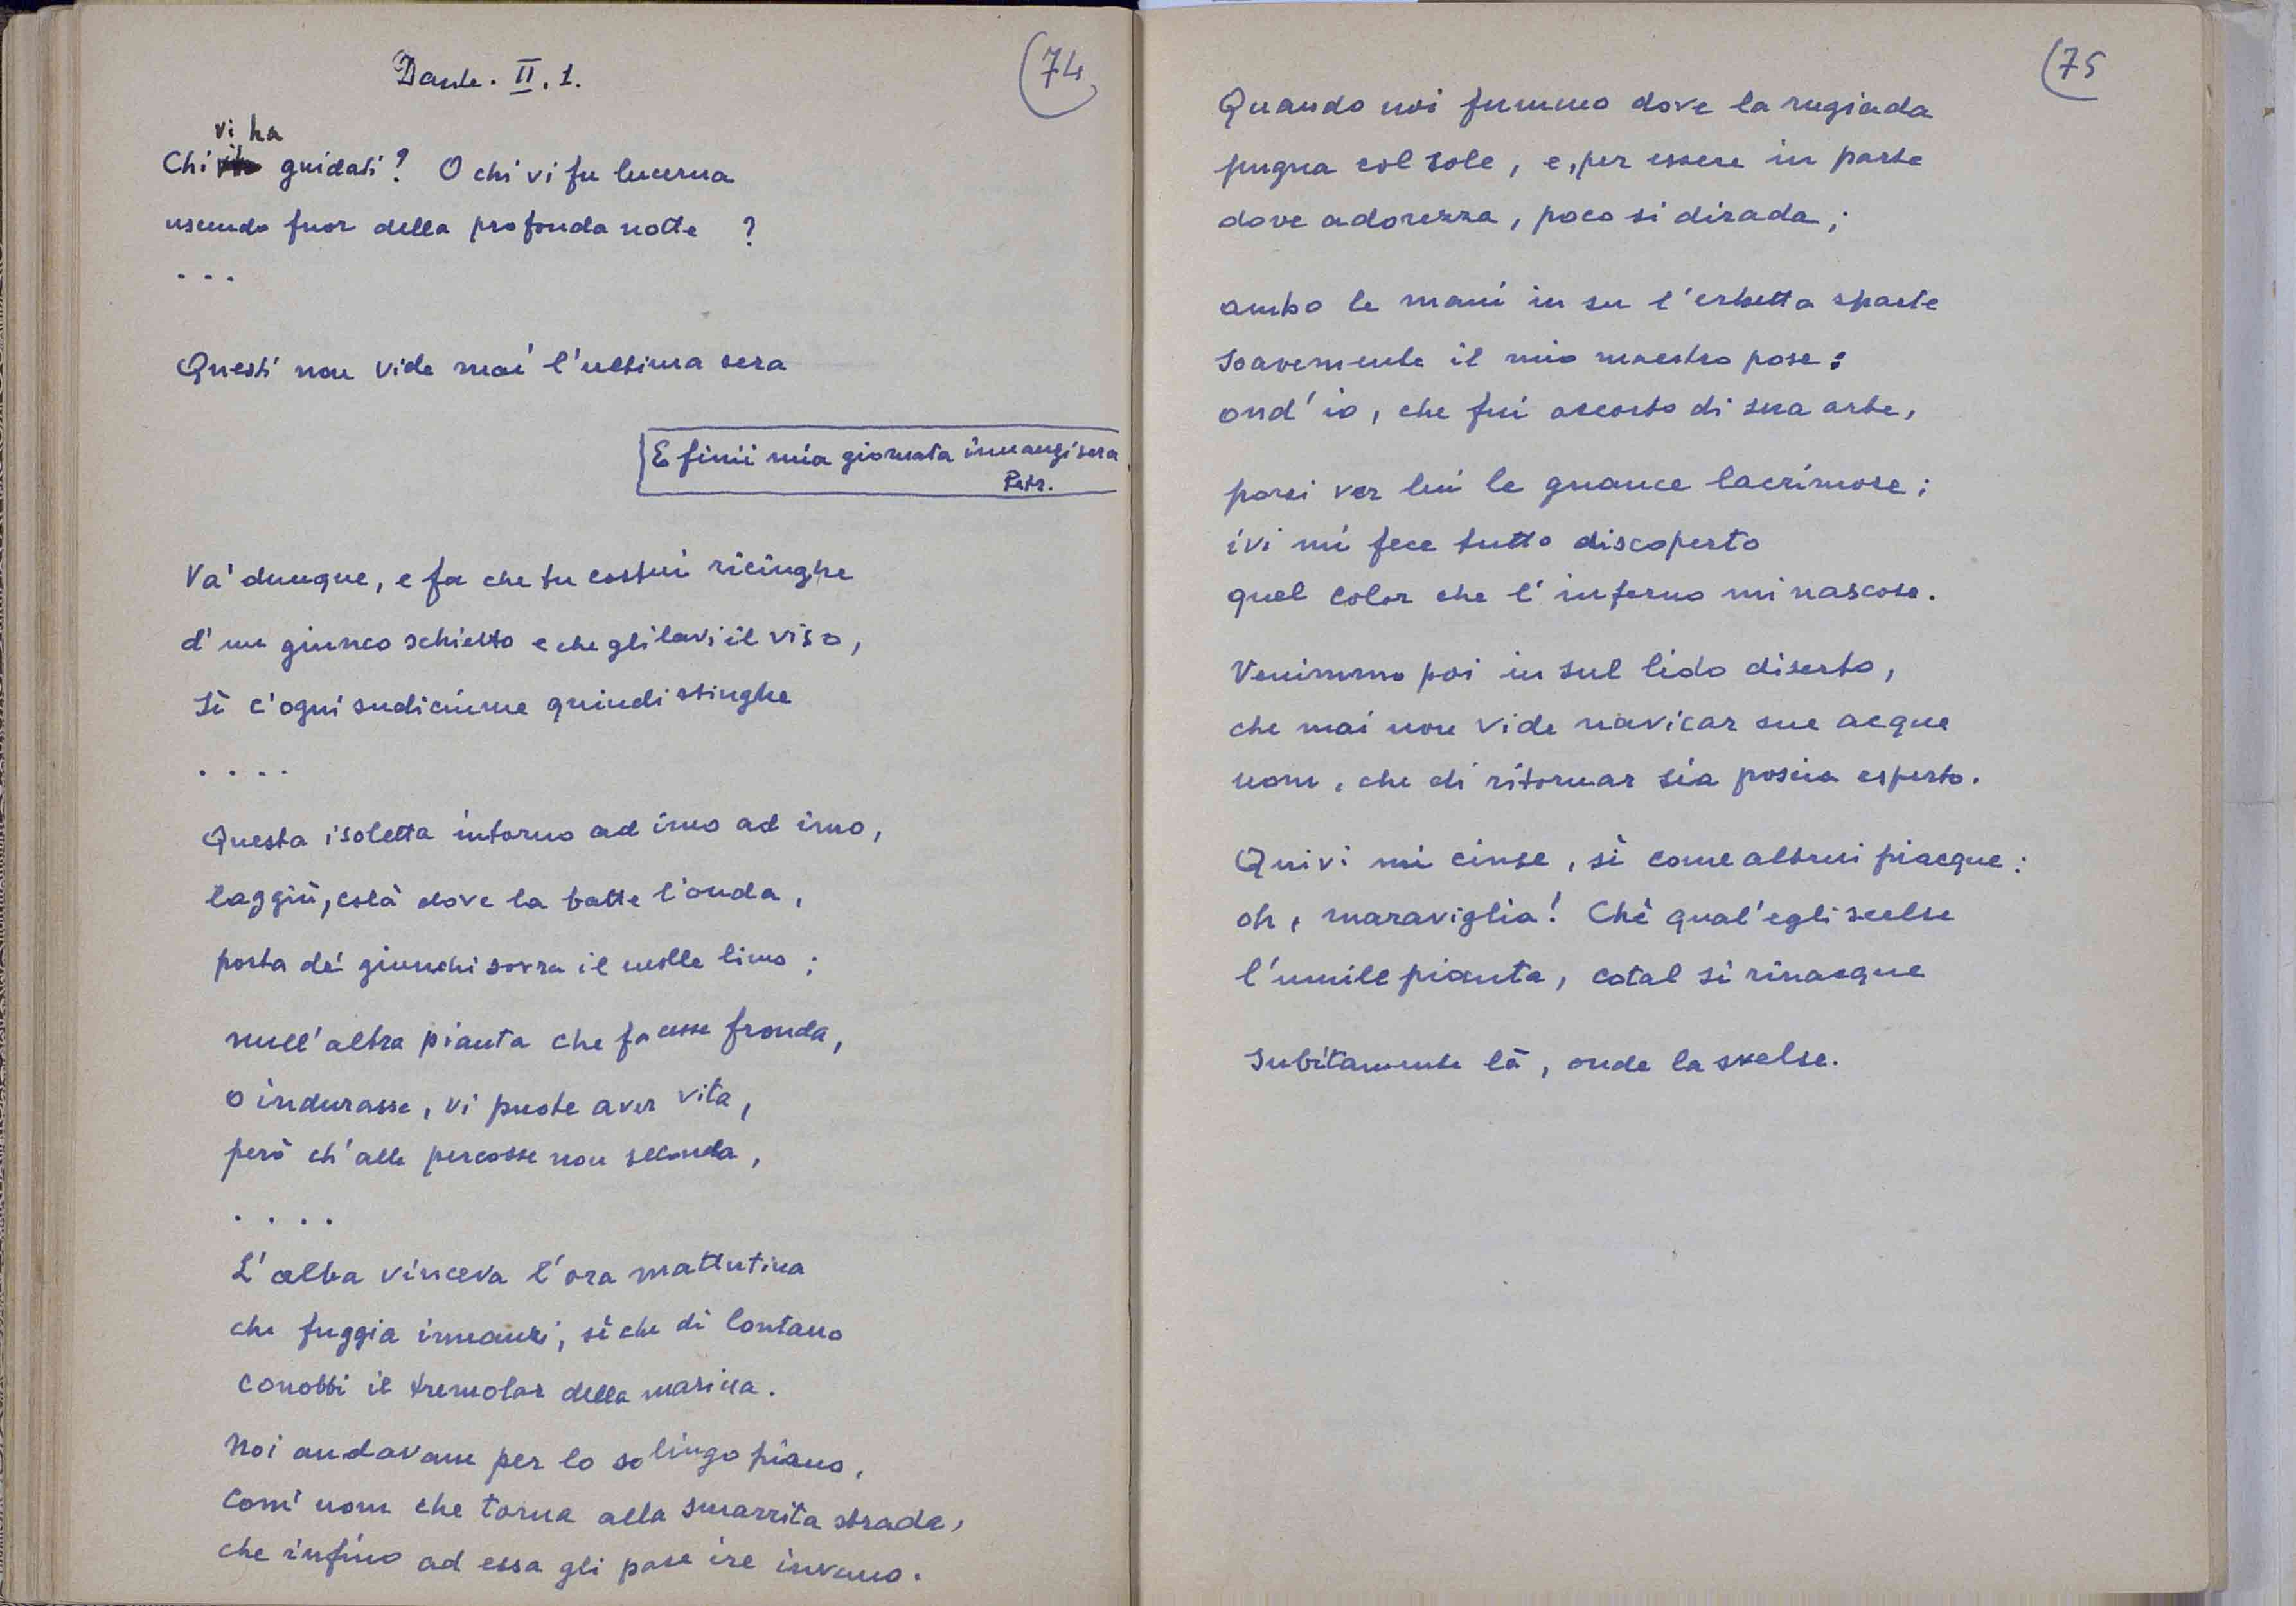 Dante. II. 1.
74
vi ha
Chi guidati? O chi vi fu lucerna
uscendo fuor della profonda notte ?
...
Questi non vide mai l'ultima sera
E finii mia giornata innanzi sera
Petr.
Va' dunque, e fa che tu costui ricinghe
d'un giunco schietto e che gli lavi il viso,
sì c'ogni sudiciume quindi stinghe
....
Questa isoletta intorno ad imo ad imo,
laggiù, colà dove la batte l'onda,
porta de' giunchi sovra il molle limo ;
null'altra pianta che facesse fronda,
o indurasse, vi puote aver vita,
però ch'alle percosse non seconda,
....
L'alba vinceva l'ora mattutina
che fuggia innanzi, sì che di lontano
conobbi il tremolar della marina.
Noi andavam per lo solingo piano,
com' uom che torna alla smarrita strada,
che infino ad essa gli pare ire invano.
75
Quando noi fummo dove la rugiada
pugna col sole, e, per essere in parte
dove adorezza, poco si dirada ;
ambo le mani in su l'erbetta sparte
soavemente il mio maestro pose :
ond' io, che fui accorto di sua arte,
porsi ver lui le guance lacrimose ;
ivi mi fece tutto discoperto
quel color che l'inferno mi nascose.
Venimmo poi in sul lido diserto,
che mai non vide navicar sue acque
uom, che di ritornar sia poscia esperto.
Quivi mi cinse, sì come altrui piacque :
oh, maraviglia! Chè qual'egli scelse
l'umile pianta, cotal si rinacque
subitamente là, onde la svelse.